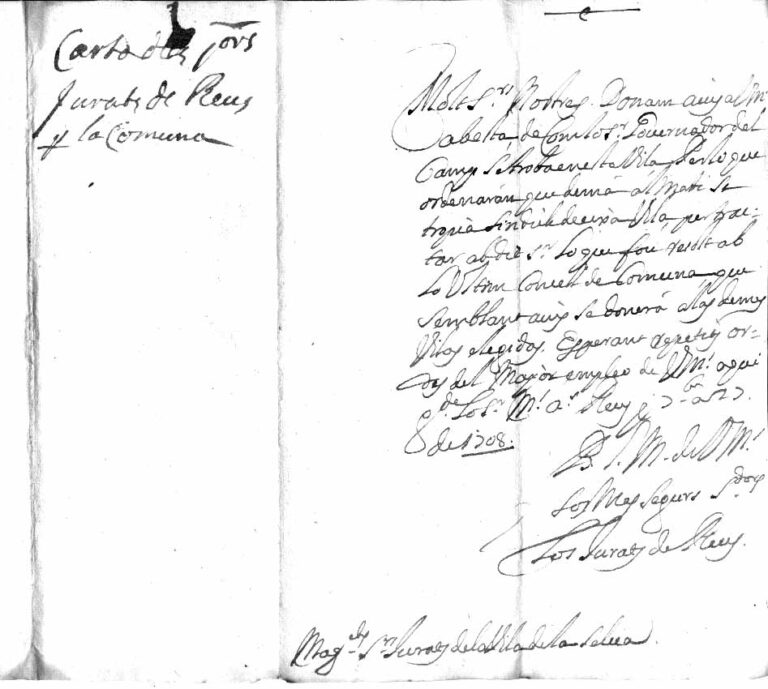 Carta dels s.ors
Jurats de Reus
y la Comuna
Molt S.rs Nostres. Donam avis a V M.s
de com lo s.r Governador del
Camp se troba en esta Vila Per lo que
ordenarán que demá al Matí se
sindich de eixa Vila per trac-
tar ab dit s.r lo que fou resolt ab
lo Ultim Concell de Comuna que
Semblant avis se donerá a las demes
Vilas elegidas. Esperant repetits or-
des del Major empleo de V M.s a qui
g.de lo S.r M.s a.s Reus
de 1708.
B. L. M. de V M.s
Los Mes Segurs S.dors
Los Jurats de Reus.
Mag.chs S.rs Jurats de la Vila de la Selva.